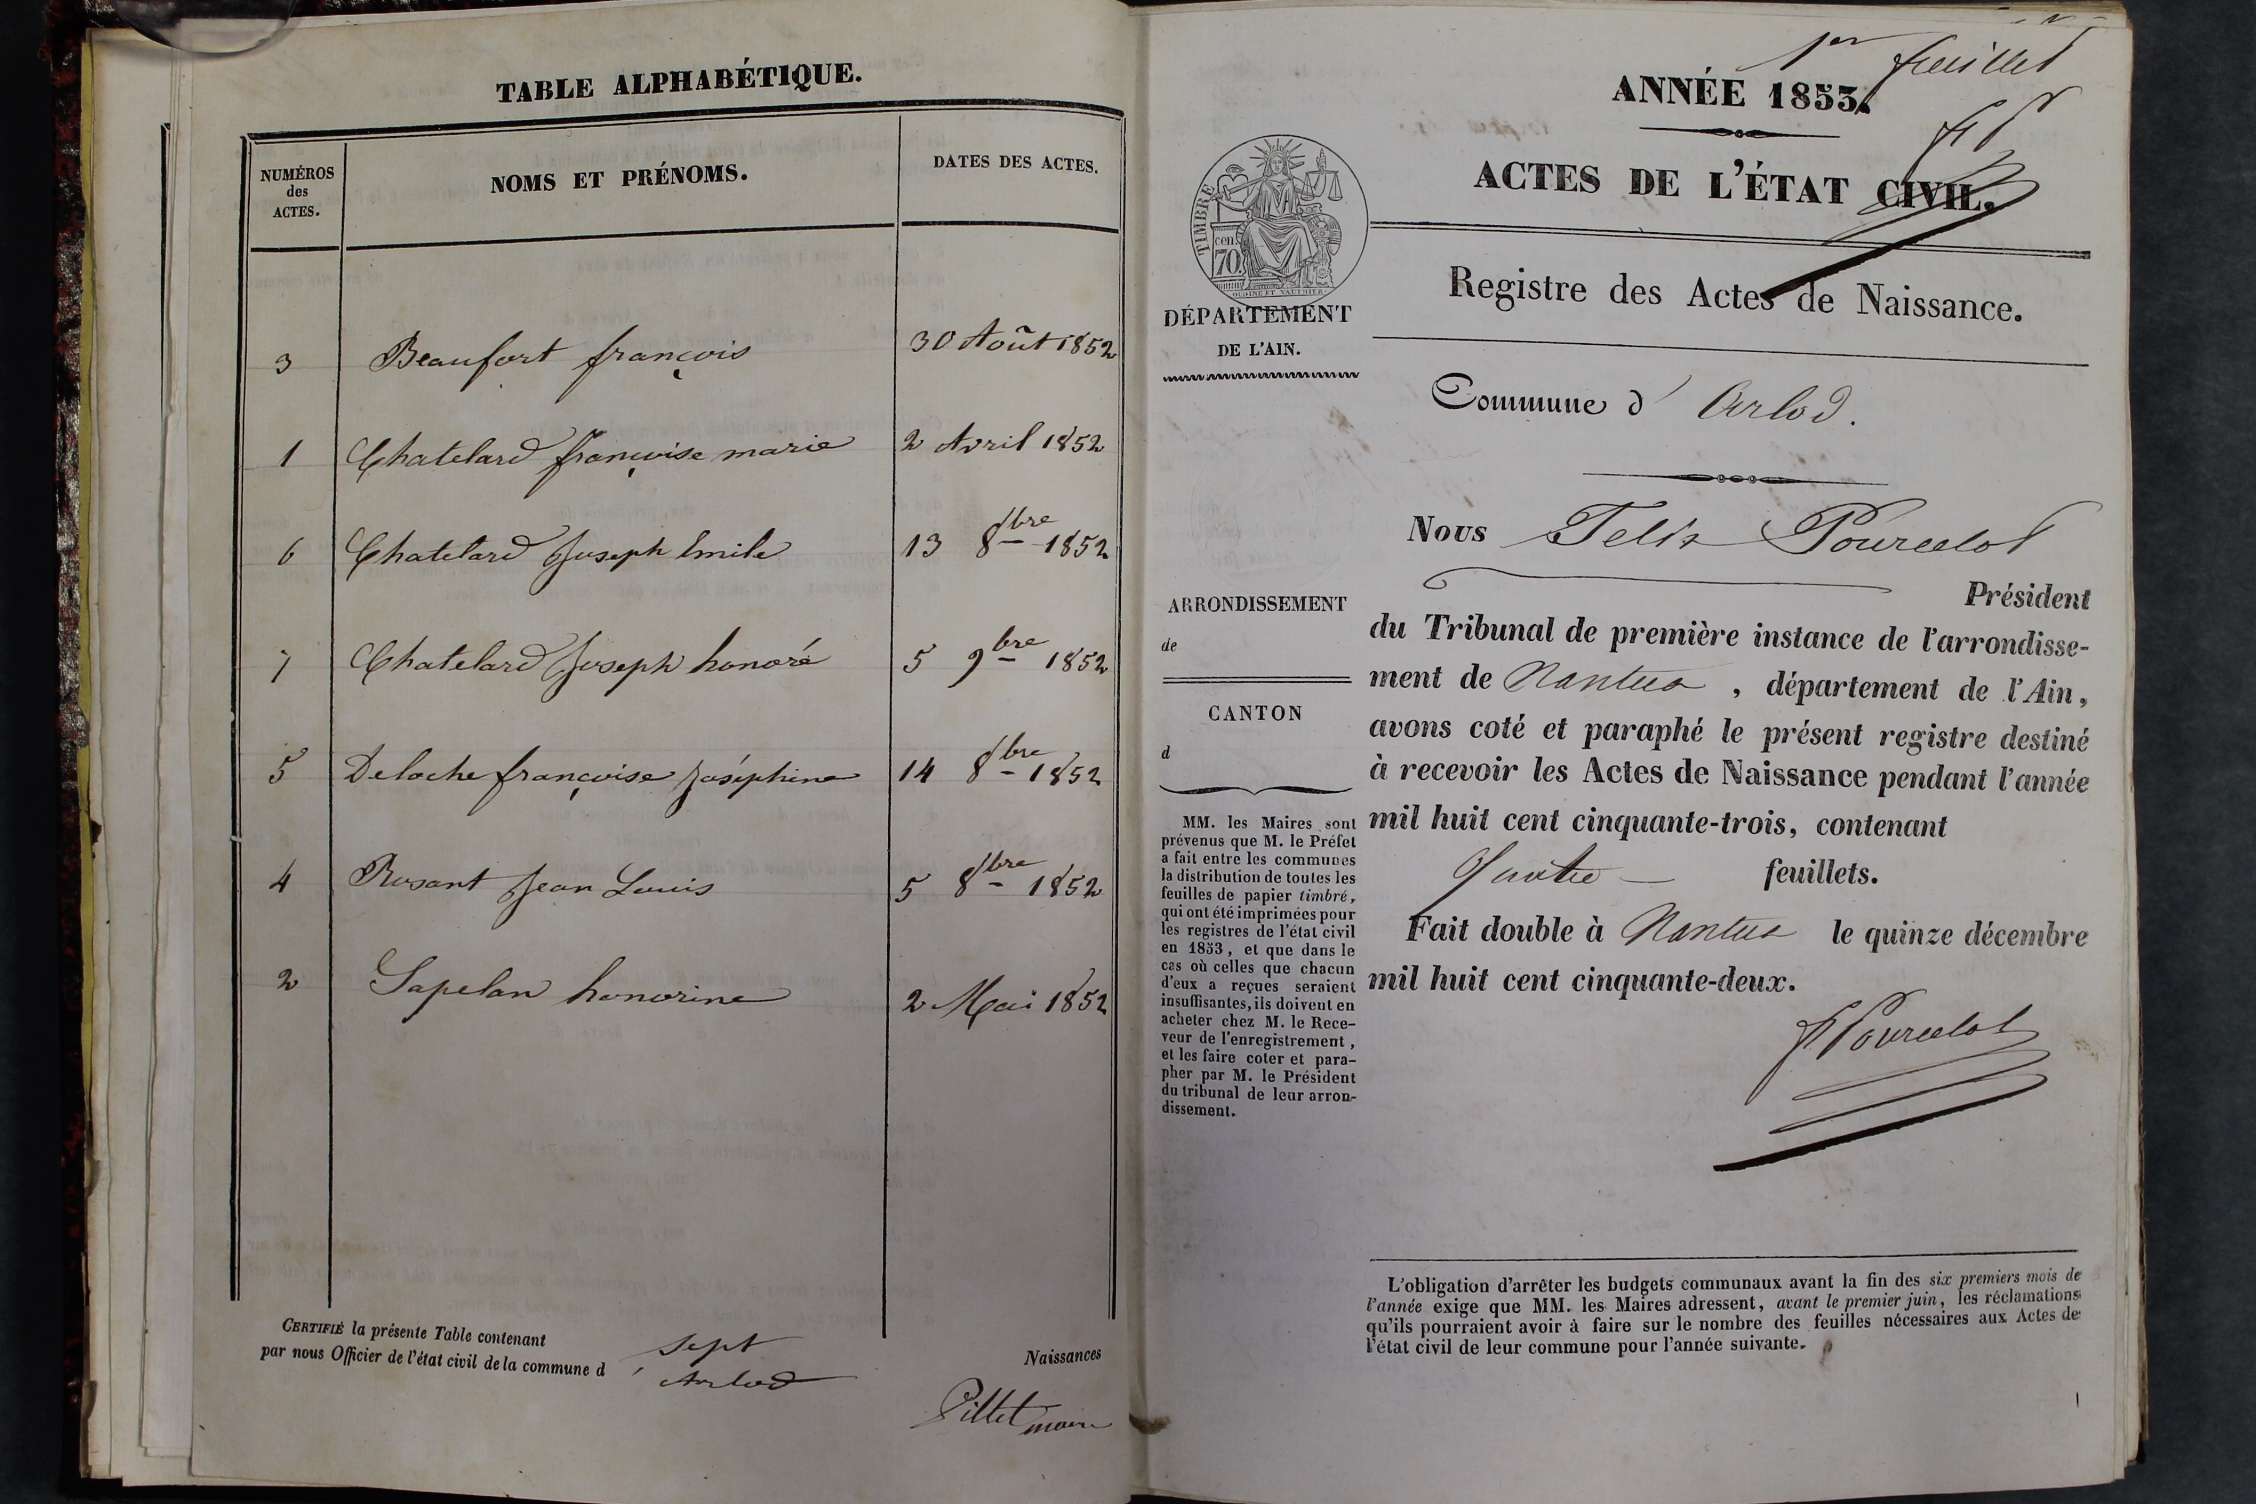 TABLE ALPHABÉTIQUE.
NUMÉROS
des
ACTES.
NOMS ET PRÉNOMS.
DATES DES ACTES.
3 Beaufort françois 30 Août 1852
1 Chatelard françoise marie 2 Avril 1852
6 Chatelard Joseph Emile 13 8bre 1852
7 Chatelard Joseph honoré 5 9bre 1852
5 Deloche françoise Joséphine 14 8bre 1852
4 Rosant Jean Louis 5 8bre 1852
2 Sapelan honorine 2 Mai 1852
CERTIFIÉ la présente Table contenant sept Naissances
par nous Officier de l'état civil de la commune d'Arlod
Pittet maire
1er feuillet
ANNÉE 1853.
ACTES DE L'ÉTAT CIVIL.
TIMBRE
cen.
70
OUDINÉ ET VAUTHIER
DÉPARTEMENT
DE L'AIN.
Registre des Actes de Naissance.
Commune d' Arlod.
ARRONDISSEMENT
de
CANTON
d
MM. les Maires sont
prévenus que M. le Préfet
a fait entre les communes
la distribution de toutes les
feuilles de papier timbré,
qui ont été imprimées pour
les registres de l'état civil
en 1853, et que dans le
cas où celles que chacun
d'eux a reçues seraient
insuffisantes, ils doivent en
acheter chez M. le Rece-
veur de l'enregistrement,
et les faire coter et para-
pher par M. le Président
du tribunal de leur arron-
dissement.
Nous Felix Pourcelot
Président
du Tribunal de première instance de l'arrondisse-
ment de Nantua, département de l'Ain,
avons coté et paraphé le présent registre destiné
à recevoir les Actes de Naissance pendant l'année
mil huit cent cinquante-trois, contenant
Quatre feuillets.
Fait double à Nantua le quinze décembre
mil huit cent cinquante-deux.
F Pourcelot
L'obligation d'arrêter les budgets communaux avant la fin des six premiers mois de
l'année exige que MM. les Maires adressent, avant le premier juin, les réclamations
qu'ils pourraient avoir à faire sur le nombre des feuilles nécessaires aux Actes de
l'état civil de leur commune pour l'année suivante.
1